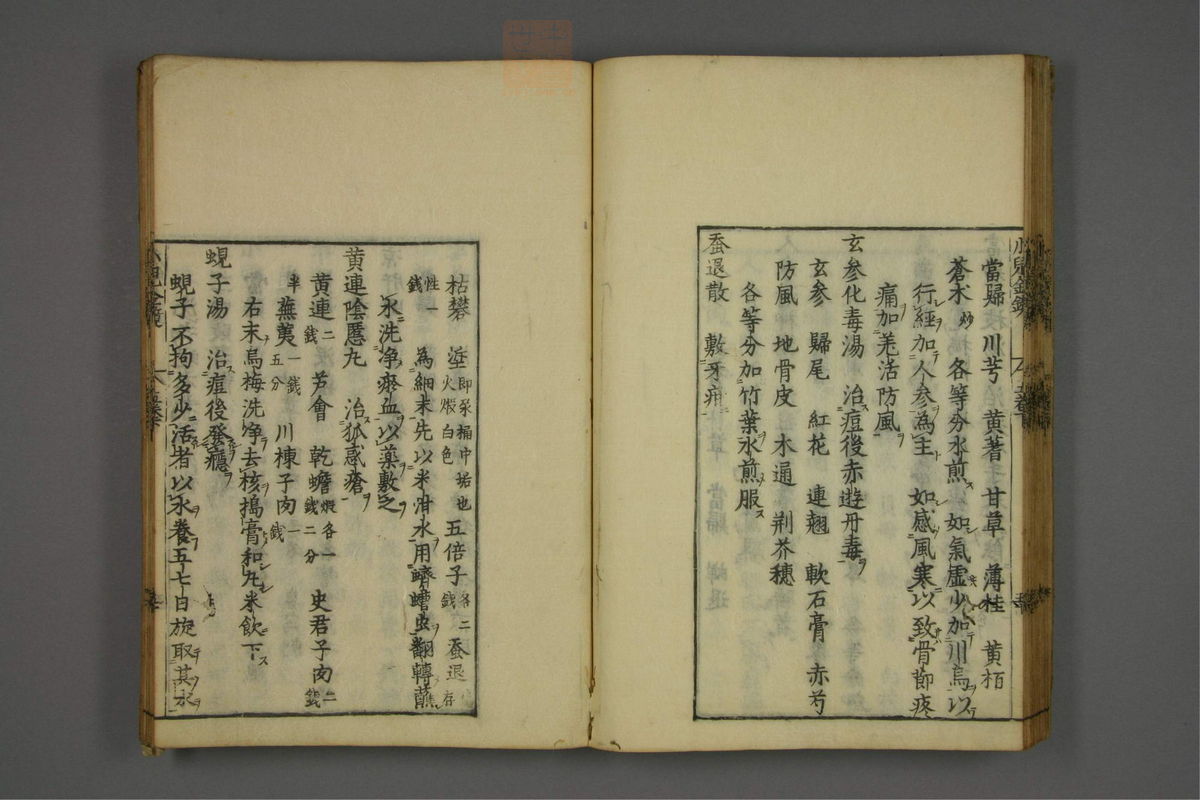 當歸 川芎 黄蓍 甘草 薄桂 黄栢
蒼朮炒 各等分水煎 如氣虚少加川烏以
行經加人參為主 如感風寒以致骨節疼
痛加羌活防風
玄參化毒湯 治痘後赤遊丹毒
玄參 歸尾 紅花 連翹 軟石膏 赤芍
防風 地骨皮 木通 荆芥穗
各等分加竹葉水煎服
蚕退散 敷牙疳
枯礬 垽即尿桶中垢也火煅白色 五倍子各二錢 蚕退存
性一錢 為細末先以米泔水用蠐螬虫翻轉蘸
水洗净瘀血以薬敷之
黄連陰慝丸 治狐惑瘡
黄連二錢 芦會 乾蟾煅各一錢二分 史君子肉二錢
半 蕪荑一錢五分 川楝子肉一錢
右末烏梅洗净去核搗膏和丸米飲下
蜆子湯 治痘後發癮
蜆子不拘多少活者以水養五七日旋取其水